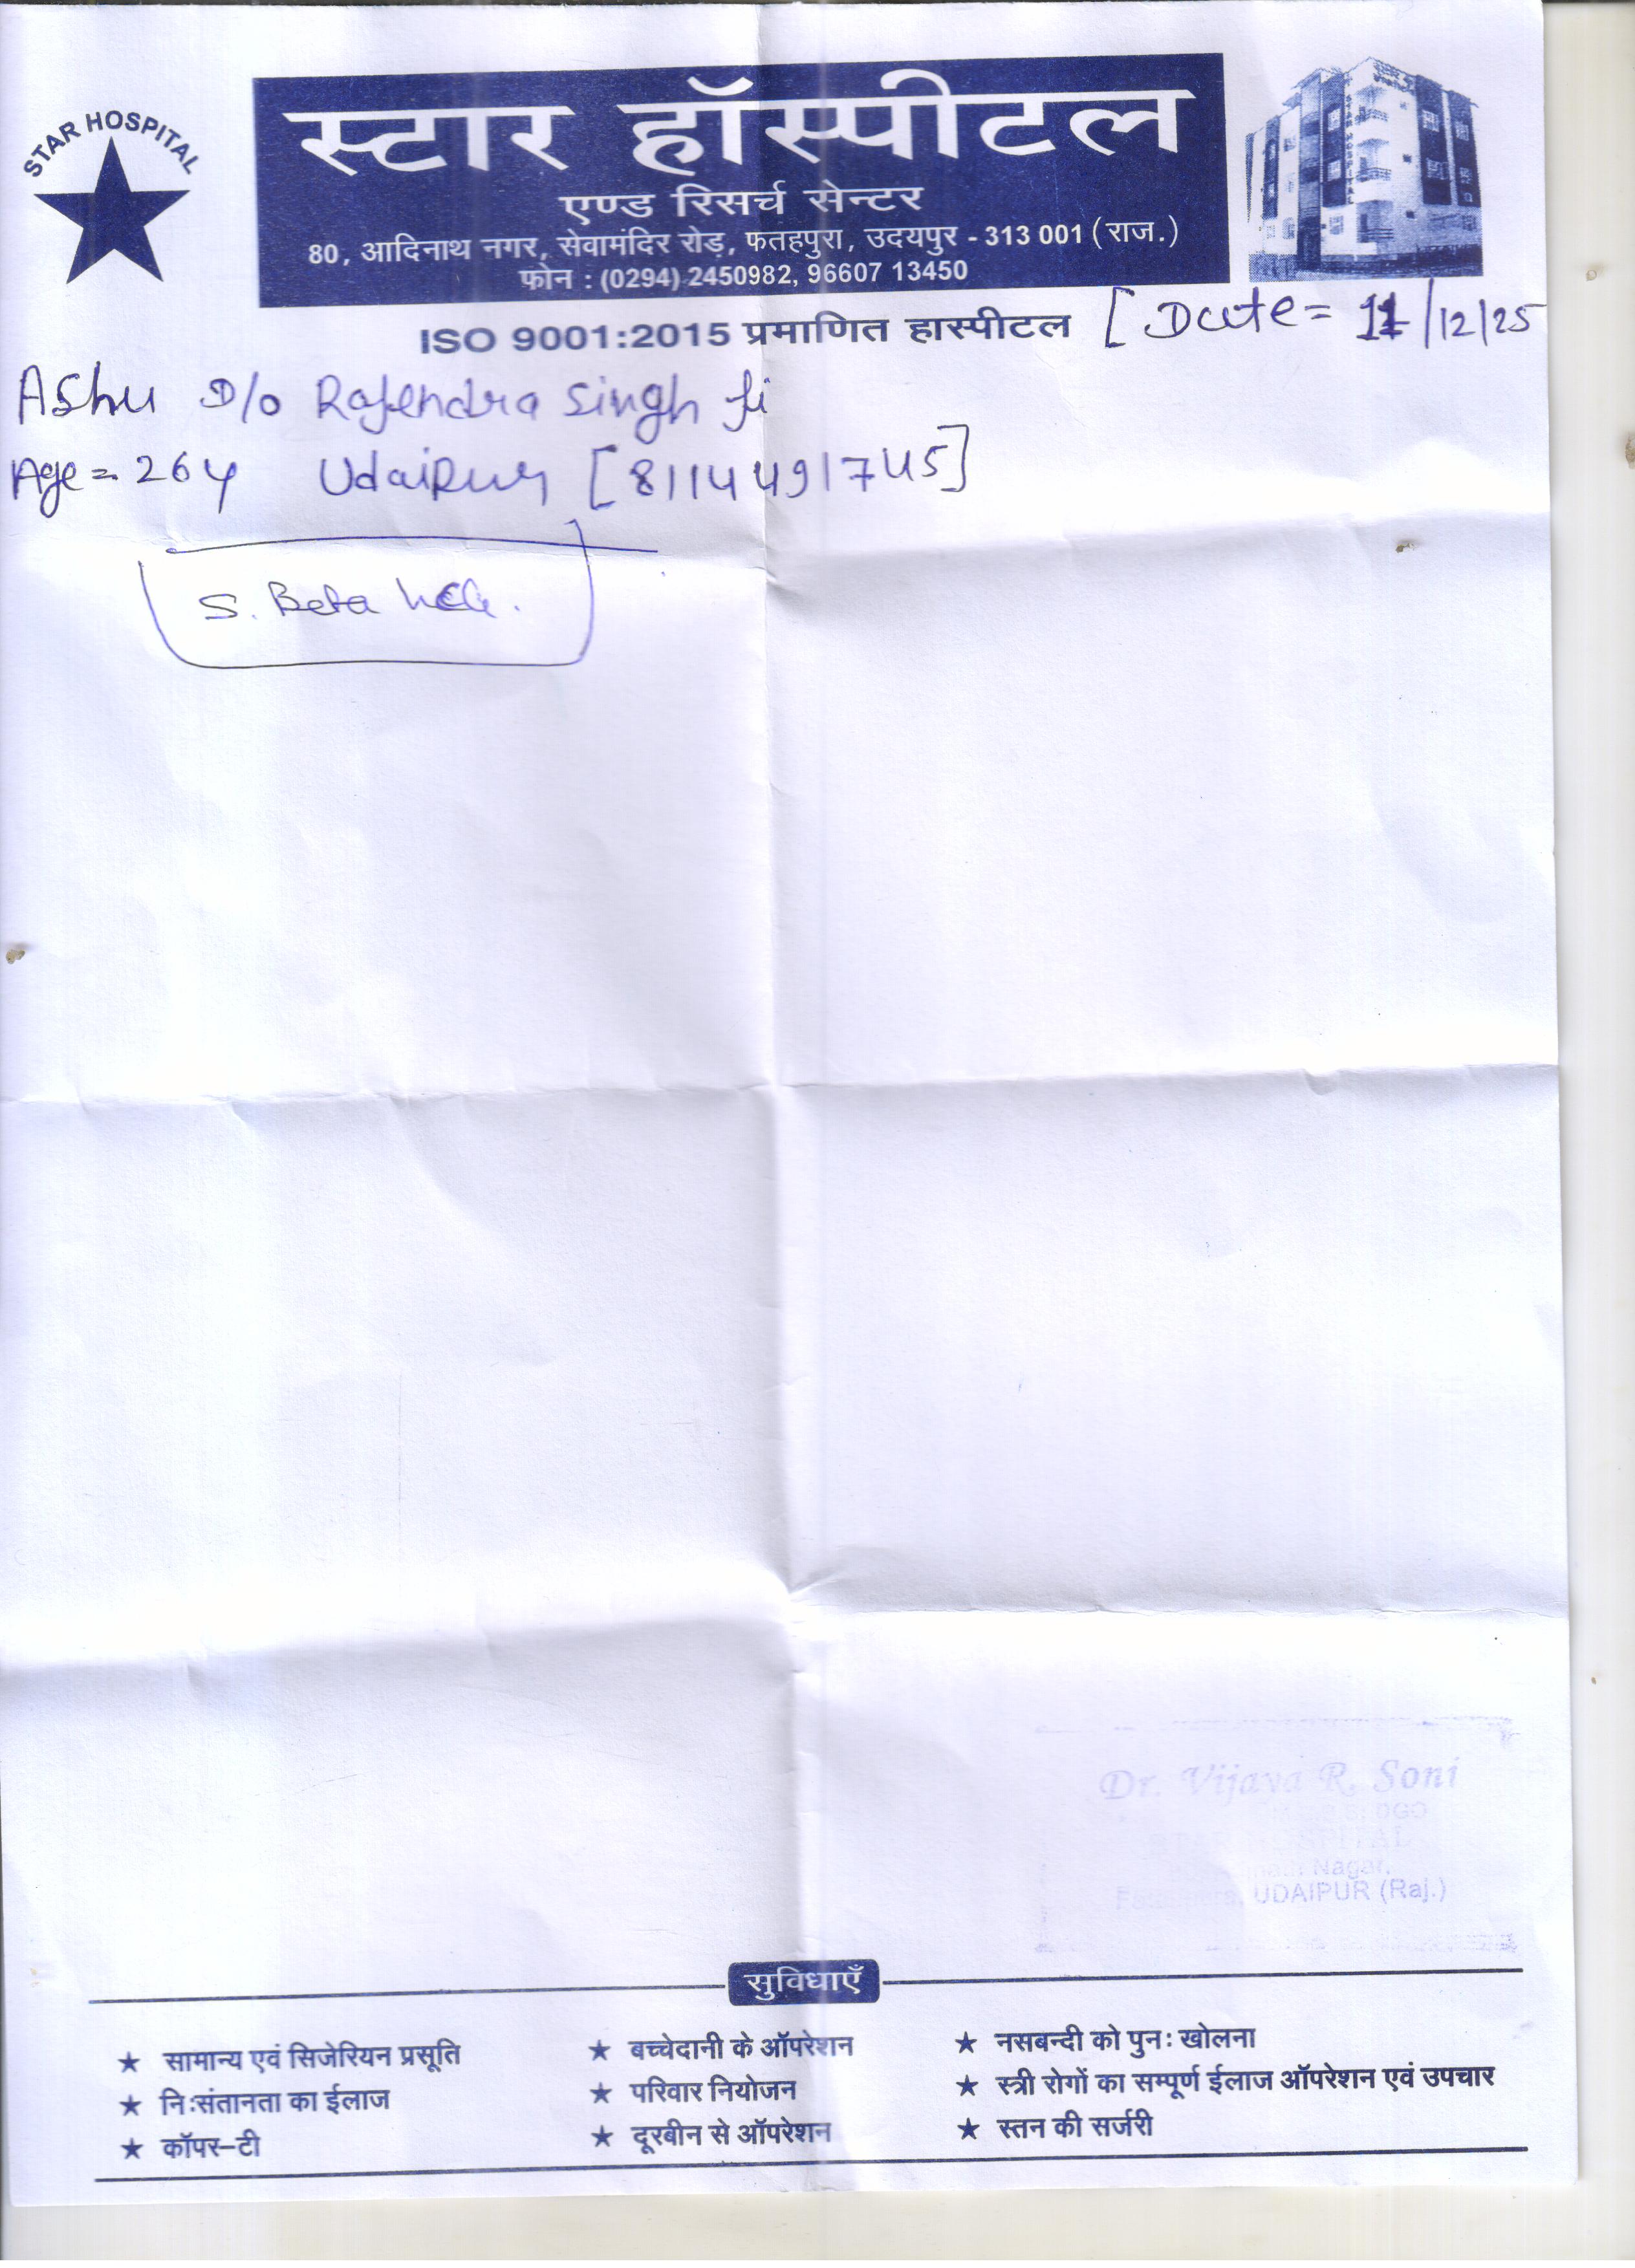 STAR HOSPITAL
स्टार हॉस्पीटल
एण्ड रिसर्च सेन्टर
80, आदिनाथ नगर, सेवामंदिर रोड़, फतहपुरा, उदयपुर - 313 001 (राज.)
फोन : (0294) 2450982, 96607 13450
ISO 9001:2015 प्रमाणित हास्पीटल [Date = 11/12/25
Ashu D/o Rajendra Singh Ji
Age = 26y Udaipur [8114491745]
S. Beta hCG.
Dr. Vijaya R. Soni
DGO
HOSPITAL
Nagar,
UDAIPUR (Raj.)
सुविधाएँ
★ सामान्य एवं सिजेरियन प्रसूति ★ बच्चेदानी के ऑपरेशन ★ नसबन्दी को पुनः खोलना
★ निःसंतानता का ईलाज ★ परिवार नियोजन ★ स्त्री रोगों का सम्पूर्ण ईलाज ऑपरेशन एवं उपचार
★ कॉपर-टी ★ दूरबीन से ऑपरेशन ★ स्तन की सर्जरी